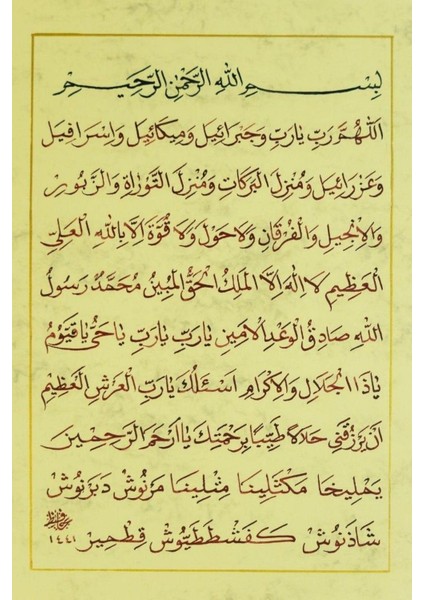 بِسْمِ اللهِ الرَّحْمٰنِ الرَّحِيْمِ
اَللّٰهُمَّ رَبِّ يَارَبِّ وَجَبْرَائِيلَ وَمِيكَائِيلَ وَاِسْرَافِيلَ
وَعَزْرَائِيلَ وَمُنْزِلَ الْبَرَكَاتِ وَمُنْزِلَ التَّوْرَاةِ وَالزَّبُورِ
وَالْاِنْجِيلِ وَالْفُرْقَانِ وَلَا حَوْلَ وَلَا قُوَّةَ اِلَّا بِاللهِ الْعَلِيِّ
الْعَظِيمِ لَا اِلٰهَ اِلَّا الْمَلِكُ الْحَقُّ الْمُبِينُ مُحَمَّدٌ رَسُولُ
اللهِ صَادِقُ الْوَعْدِ الْاَمِينِ يَارَبِّ يَارَبِّ يَاحَيُّ يَاقَيُّومُ
يَاذَا الْجَلَالِ وَالْاِكْرَامِ اَسْئَلُكَ يَارَبَّ الْعَرْشِ الْعَظِيمِ
اَنْ يَرْزُقَنِي حَلَالًا طَيِّبًا بِرَحْمَتِكَ يَااَرْحَمَ الرَّاحِمِينَ
يَمْلِيخَا مَكْثَلِينَا مِثْلِينَا مَرْنُوشْ دَبَرْنُوشْ
شَاذَنُوشْ كَفَشْطَطَيُّوشْ قِطْمِيرْ
١٤٤١